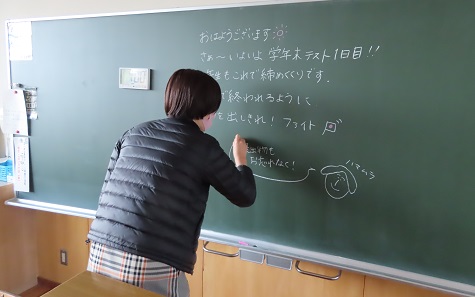 おはようございます
さぁ〜いよいよ学年末テスト1日目!!
生もこれで締めくくりです。
で終われるように
を出しきれ! ファイト
出物も
お忘れなく!
ハマムラ